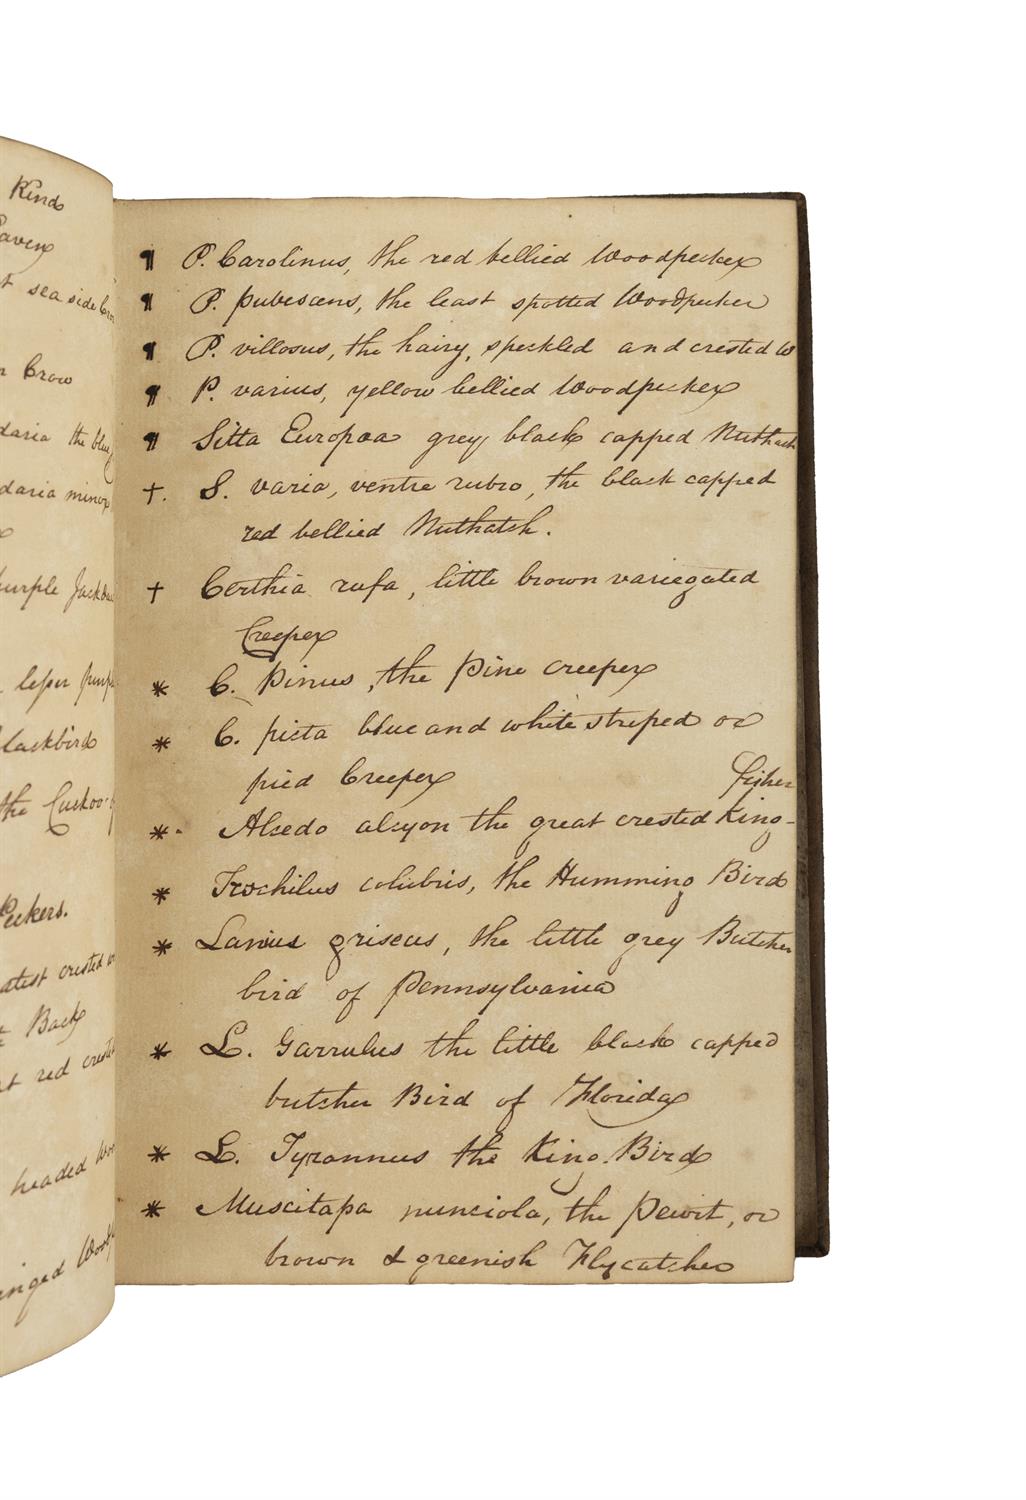 Kind
Raven
sea side Cro
Crow
daria the blue
daria minor
purple Jackdaw
lesser purple
blackbird
the Cuckoo-
Peckers.
atest crested
Back
red crested
headed Woo
inged Wood
¶ P. Carolinus, the red bellied Woodpecker
¶ P. pubescens, the least spotted Woodpecker
¶ P. villosus, the hairy, speckled and crested W
¶ P. varius, yellow bellied Woodpecker
¶ Sitta Europaa grey black capped Nuthatch
†. S. varia, ventre rubro, the black capped
red bellied Nuthatch.
† Certhia rufa, little brown variegated
Creeper
* C. pinus, the Pine creeper
* C. picta blue and white striped or
pied Creeper
Fisher
* Alsedo alsyon the great crested King-
* Trochilus colubris, the Humming Bird
* Lanius griscus, the little grey Butcher
bird of Pennsylvania
* L. Garrulus the little black capped
butcher Bird of Florida
* L. Tyrannus the King Bird
* Muscitapa nunciola, the Pewit, or
brown & greenish Flycatcher